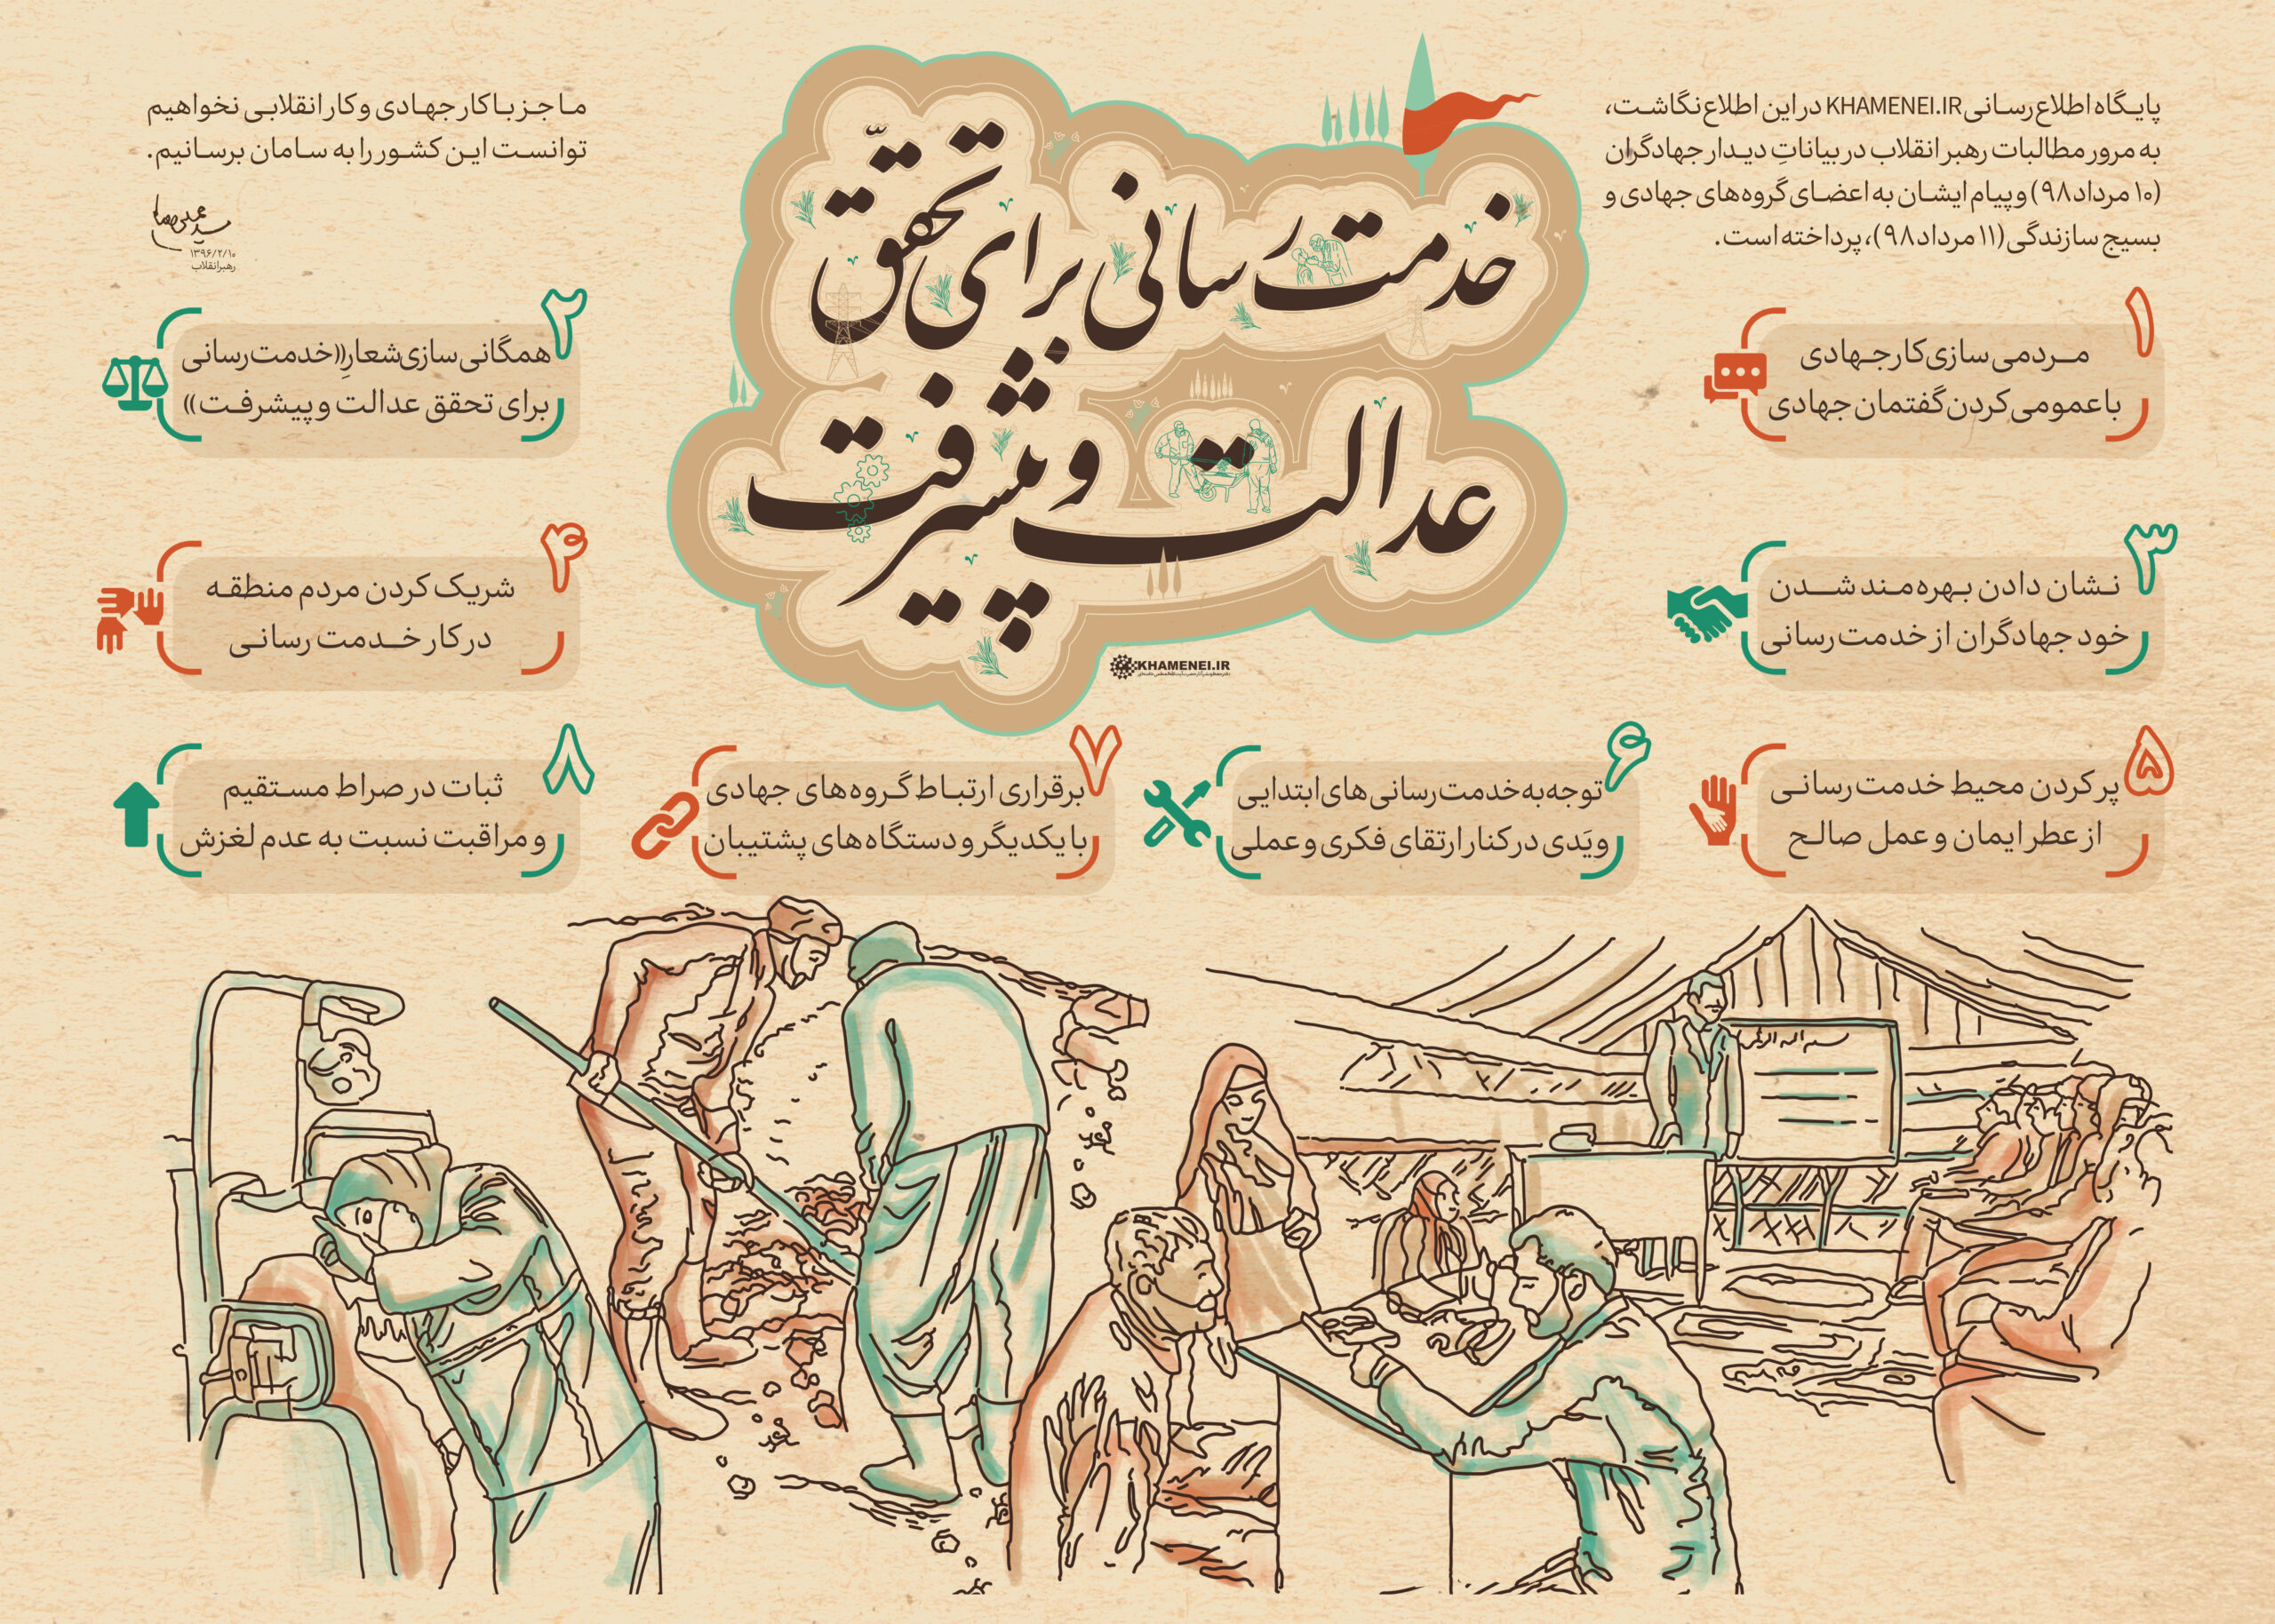 پایگاه اطلاع‌رسانی KHAMENEI.IR در این اطلاع‌نگاشت،
به مرور مطالبات رهبر انقلاب در بیاناتِ دیدار جهادگران
(۱۰ مرداد ۹۸) و پیام ایشان به اعضای گروه‌های جهادی و
بسیج سازندگی (۱۱ مرداد ۹۸)، پرداخته است.
خدمت‌رسانی برای تحقّق
عدالت و پیشرفت
KHAMENEI.IR
ما جز با کار جهادی و کار انقلابی نخواهیم
توانست این کشور را به سامان برسانیم.
۱۳۹۶/۲/۱۰
رهبر انقلاب
۱
مردمی سازی کار جهادی
با عمومی کردن گفتمان جهادی
۲
همگانی سازی شعارِ «خدمت‌رسانی
برای تحقق عدالت و پیشرفت»
۳
نشان دادن بهره‌مند شدن
خود جهادگران از خدمت رسانی
۴
شریک کردن مردم منطقه
در کار خدمت رسانی
۵
پر کردن محیط خدمت رسانی
از عطر ایمان و عمل صالح
۶
توجه به خدمت‌رسانی‌های ابتدایی
و یَدی در کنار ارتقای فکری و عملی
۷
برقراری ارتباط گروه‌های جهادی
با یکدیگر و دستگاه‌های پشتیبان
۸
ثبات در صراط مستقیم
و مراقبت نسبت به عدم لغزش